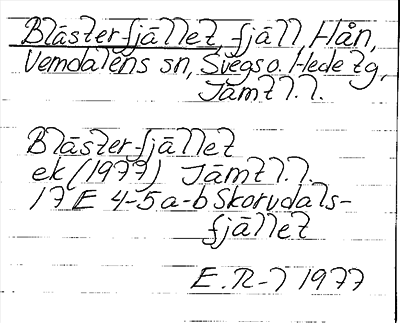 Blästerfjället, fjäll Hån,
Vemdalens sn, Svegs o. Hede tg,
Jämtl.l.
Blästerfjället
ek (1977) Jämtl.l.
17 E 4-5 a-b Skorvdals-
fjället
E. R-l 1977